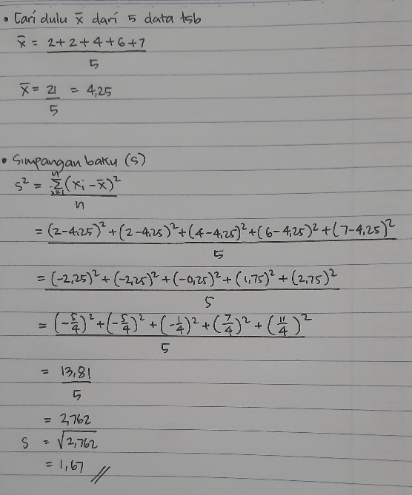 • Cari dulu x̄ dari 5 data tsb
x̄ = 2+2+4+6+7
5
x̄ = 21 = 4,25
5
• Simpangan baku (s)
s² = n∑i=1 (xi - x̄)²
n
= (2-4,25)² + (2-4,25)² + (4-4,25)² + (6-4,25)² + (7-4,25)²
5
= (-2,25)² + (-2,25)² + (-0,25)² + (1,75)² + (2,75)²
5
= (-5/4)² + (-5/4)² + (-1/4)² + (7/4)² + (11/4)²
5
= 13,81
5
= 2,762
S = √2,762
= 1,67 //